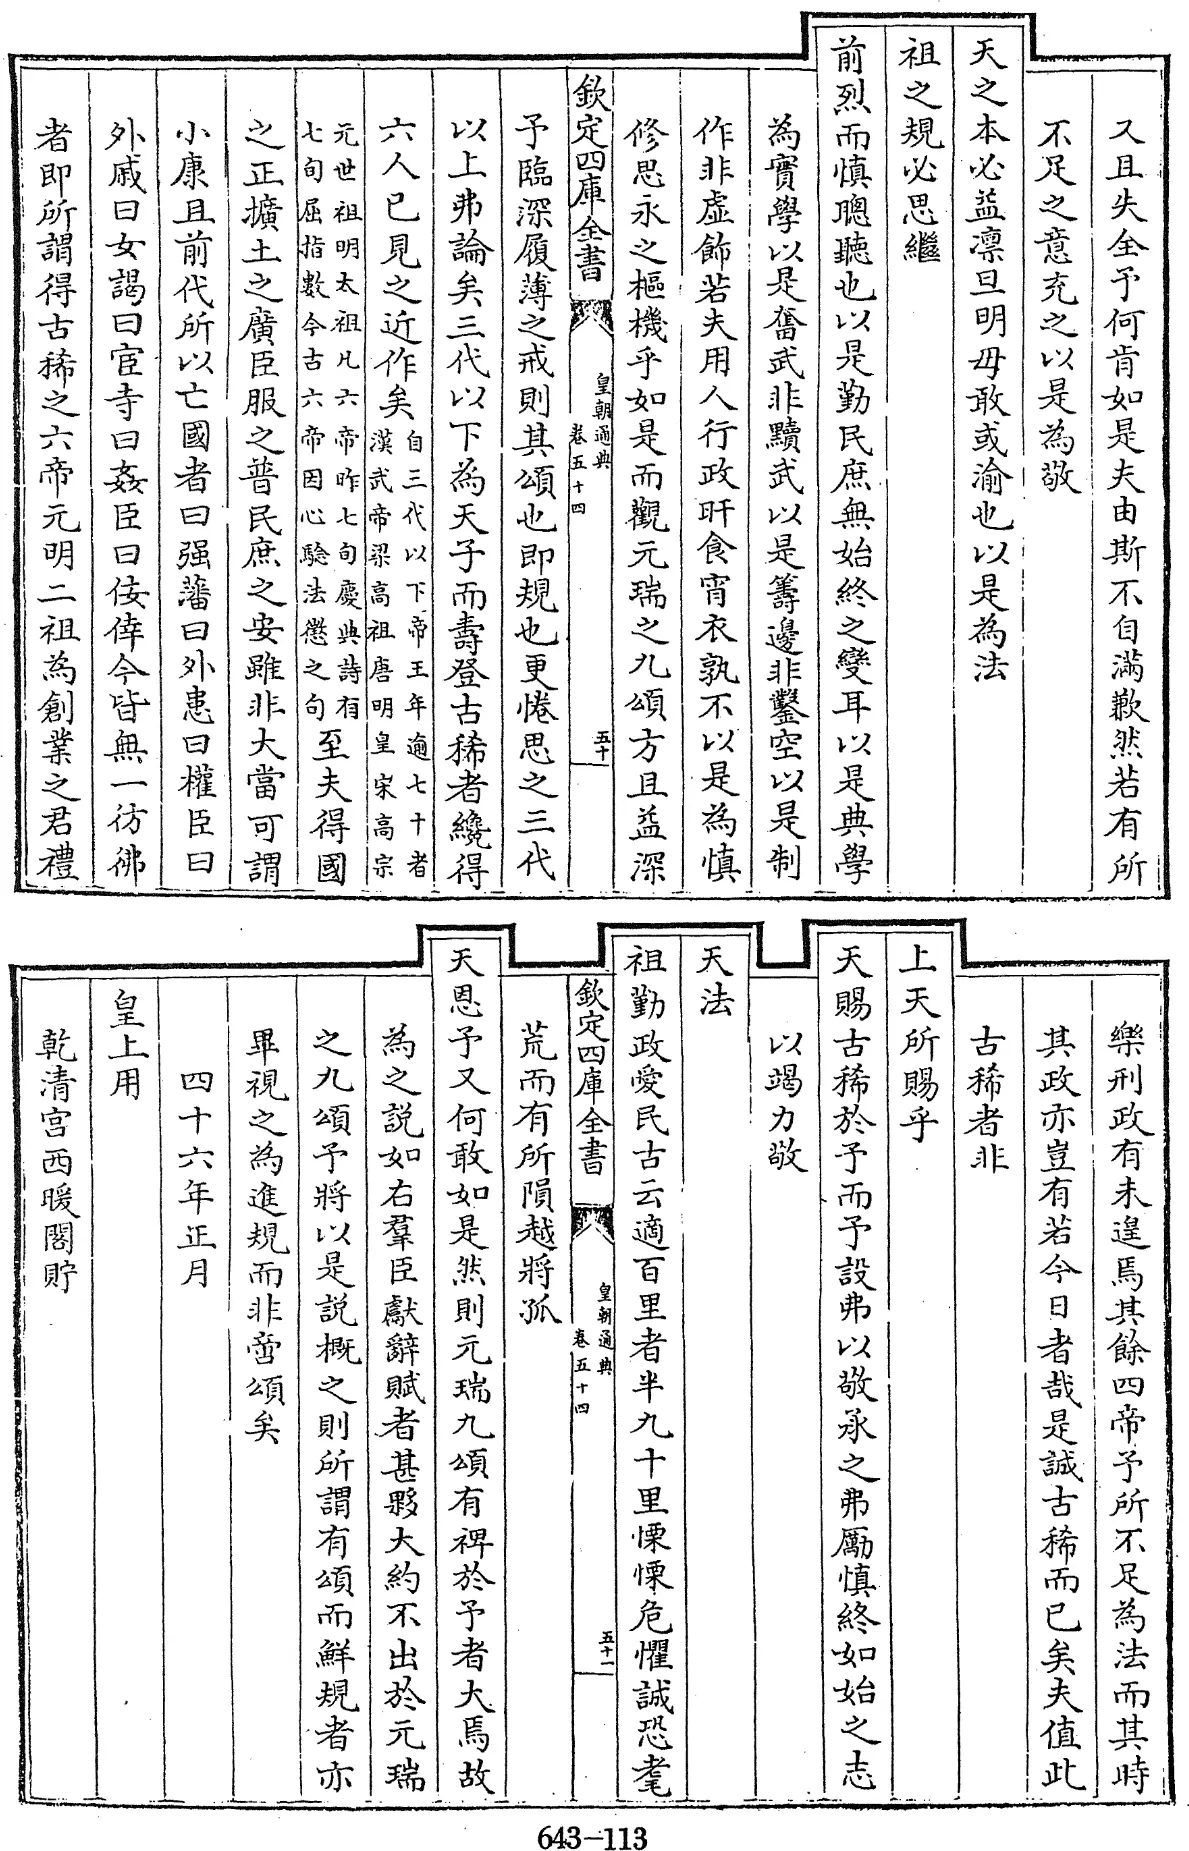 又且失全予何肯如是夫由斯不自滿歉然若有所
不足之意充之以是為敬
天之本必益凛旦明毋敢或渝也以是為法
祖之規必思繼
前烈而慎聰聽也以是勤民庶無始終之變耳以是典學
為實學以是奮武非黷武以是籌邊非鑿空以是制
作非虛飾若夫用人行政旰食宵衣孰不以是為慎
修思永之樞機乎如是而觀元瑞之九頌方且益深
欽定四庫全書
皇朝通典
卷五十四
五十
予臨深履薄之戒則其頌也即規也更惓思之三代
以上弗論矣三代以下為天子而壽登古稀者纔得
六人已見之近作矣自三代以下帝王年逾七十者
漢武帝梁高祖唐明皇宋高宗
元世祖明太祖凡六帝昨七旬慶典詩有
七旬屈指數今古六帝因心驗法懲之句至夫得國
之正擴土之廣臣服之普民庶之安雖非大當可謂
小康且前代所以亡國者曰强藩曰外患曰權臣曰
外戚曰女謁曰宦寺曰姦臣曰佞倖今皆無一彷彿
者即所謂得古稀之六帝元明二祖為創業之君禮
樂刑政有未遑焉其餘四帝予所不足為法而其時
其政亦豈有若今日者哉是誠古稀而已矣夫值此
古稀者非
上天所賜乎
天賜古稀於予而予設弗以敬承之弗厲慎終如始之志
以竭力敬
天法
祖勤政愛民古云適百里者半九十里慄慄危懼誠恐耄
欽定四庫全書
皇朝通典
卷五十四
五十一
荒而有所隕越將孤
天恩予又何敢如是然則元瑞九頌有裨於予者大焉故
為之説如右羣臣獻辭賦者甚夥大約不出於元瑞
之九頌予將以是説概之則所謂有頌而鮮規者亦
畢視之為進規而非啻頌矣
四十六年正月
皇上用
乾清宫西暖閣貯
643-113